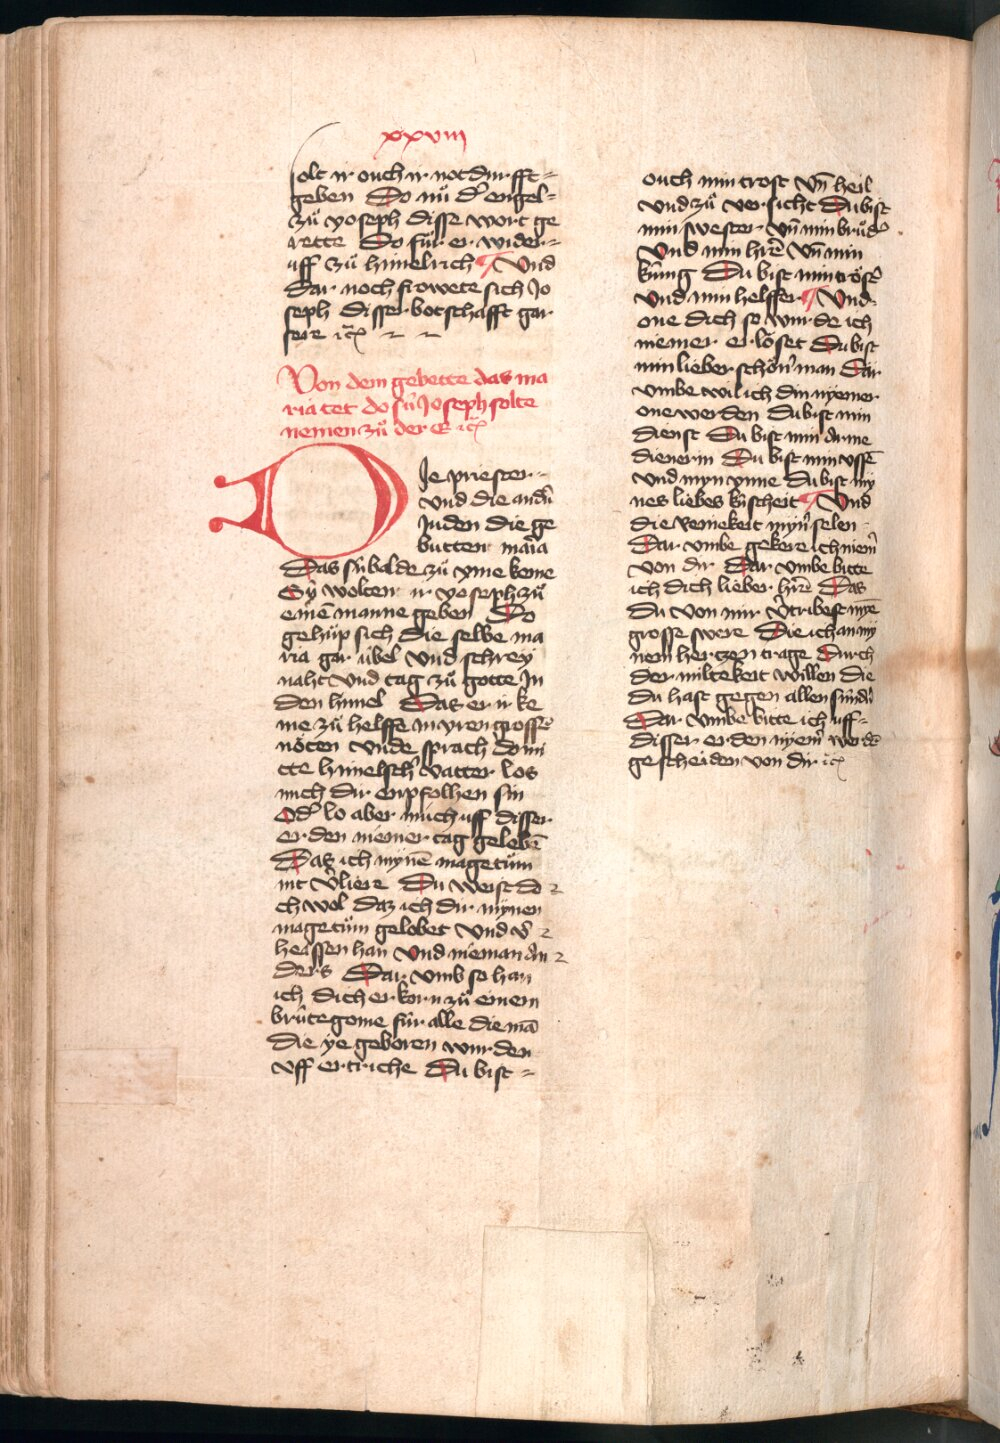 xxviii
solt ir ouch ir notdurfft=
geben Do nuͦ dˀ engel=
zuͦ yoseph disse wort ge
rette Do fuͦr er wider=
uff zuͦ himelrich ¶ Vnd
dar noch frowete sich Jo
seph disser botschafft gar
sere ꝛc̃
Von dem gebette das ma
ria tet do sú Joseph solte
nemen zuͦ der E ꝛc̃
DJe priester=
vnd die andˀn
Juden die ge
butten maria
Das sú balde zuͦ yme keme
Sy wolten ir yoseph zuͦ
einē manne geben Do
gehuͦp sich die selbe ma
ria gar úbel vnd schrey
naht vnd tag zuͦ gotte Jn
den himel Das er ir ke
me zuͦ helffe in yren grossē
nöten vnde sprach do mi
tte himelschˀ vatter los
mich dir enpfolhen sin
Odˀ lo aber mich uff disser
erden niemer tag gelebē
Daz ich mynē magetuͦm
nit vˀliere Du weist do
ch wol daz ich dir mynen
magetuͦm gelobet vnd vˀ
heissen han vnd nieman an
ders Dar vmb so han
ich dich erkorn zuͦ einem
brútegome fúr alle die mā
die ye geboren wurden
vff ertriche Du bist=
ouch min trost vn̄ heil
vnd zuͦ versicht Du bist
min swester vn̄ min bruͦdˀ
vnd min hˀrē vn̄ min
kúnig Du bist min tröstˀ
vnd min helffer ¶ Vnd
one dich so wurde ich
niemer erlöset Du bist
min lieber schönˀ man Dar
vmbe wil ich din nyemer
one werden Du bist min
dienst Du bist min arme
dienerin Du bist min vssē
vnd myn ynne Du bist my
nes liebes kúscheit ¶ Vnd
die reinekeit mynˀ selen
Dar vmbe gekere ich niemˀ
von dir Dar vmbe bitte
ich dich lieber hˀrē Das
du von mir vˀtribest myē
grosse swere Die ich an my
nem hertzen trage Durch
der miltekeit willen die
du hast gegen allen súndˀn
Dar vmbe bitte ich uff=
disser erden nyemˀ werdē
gescheiden von dir ꝛc̃